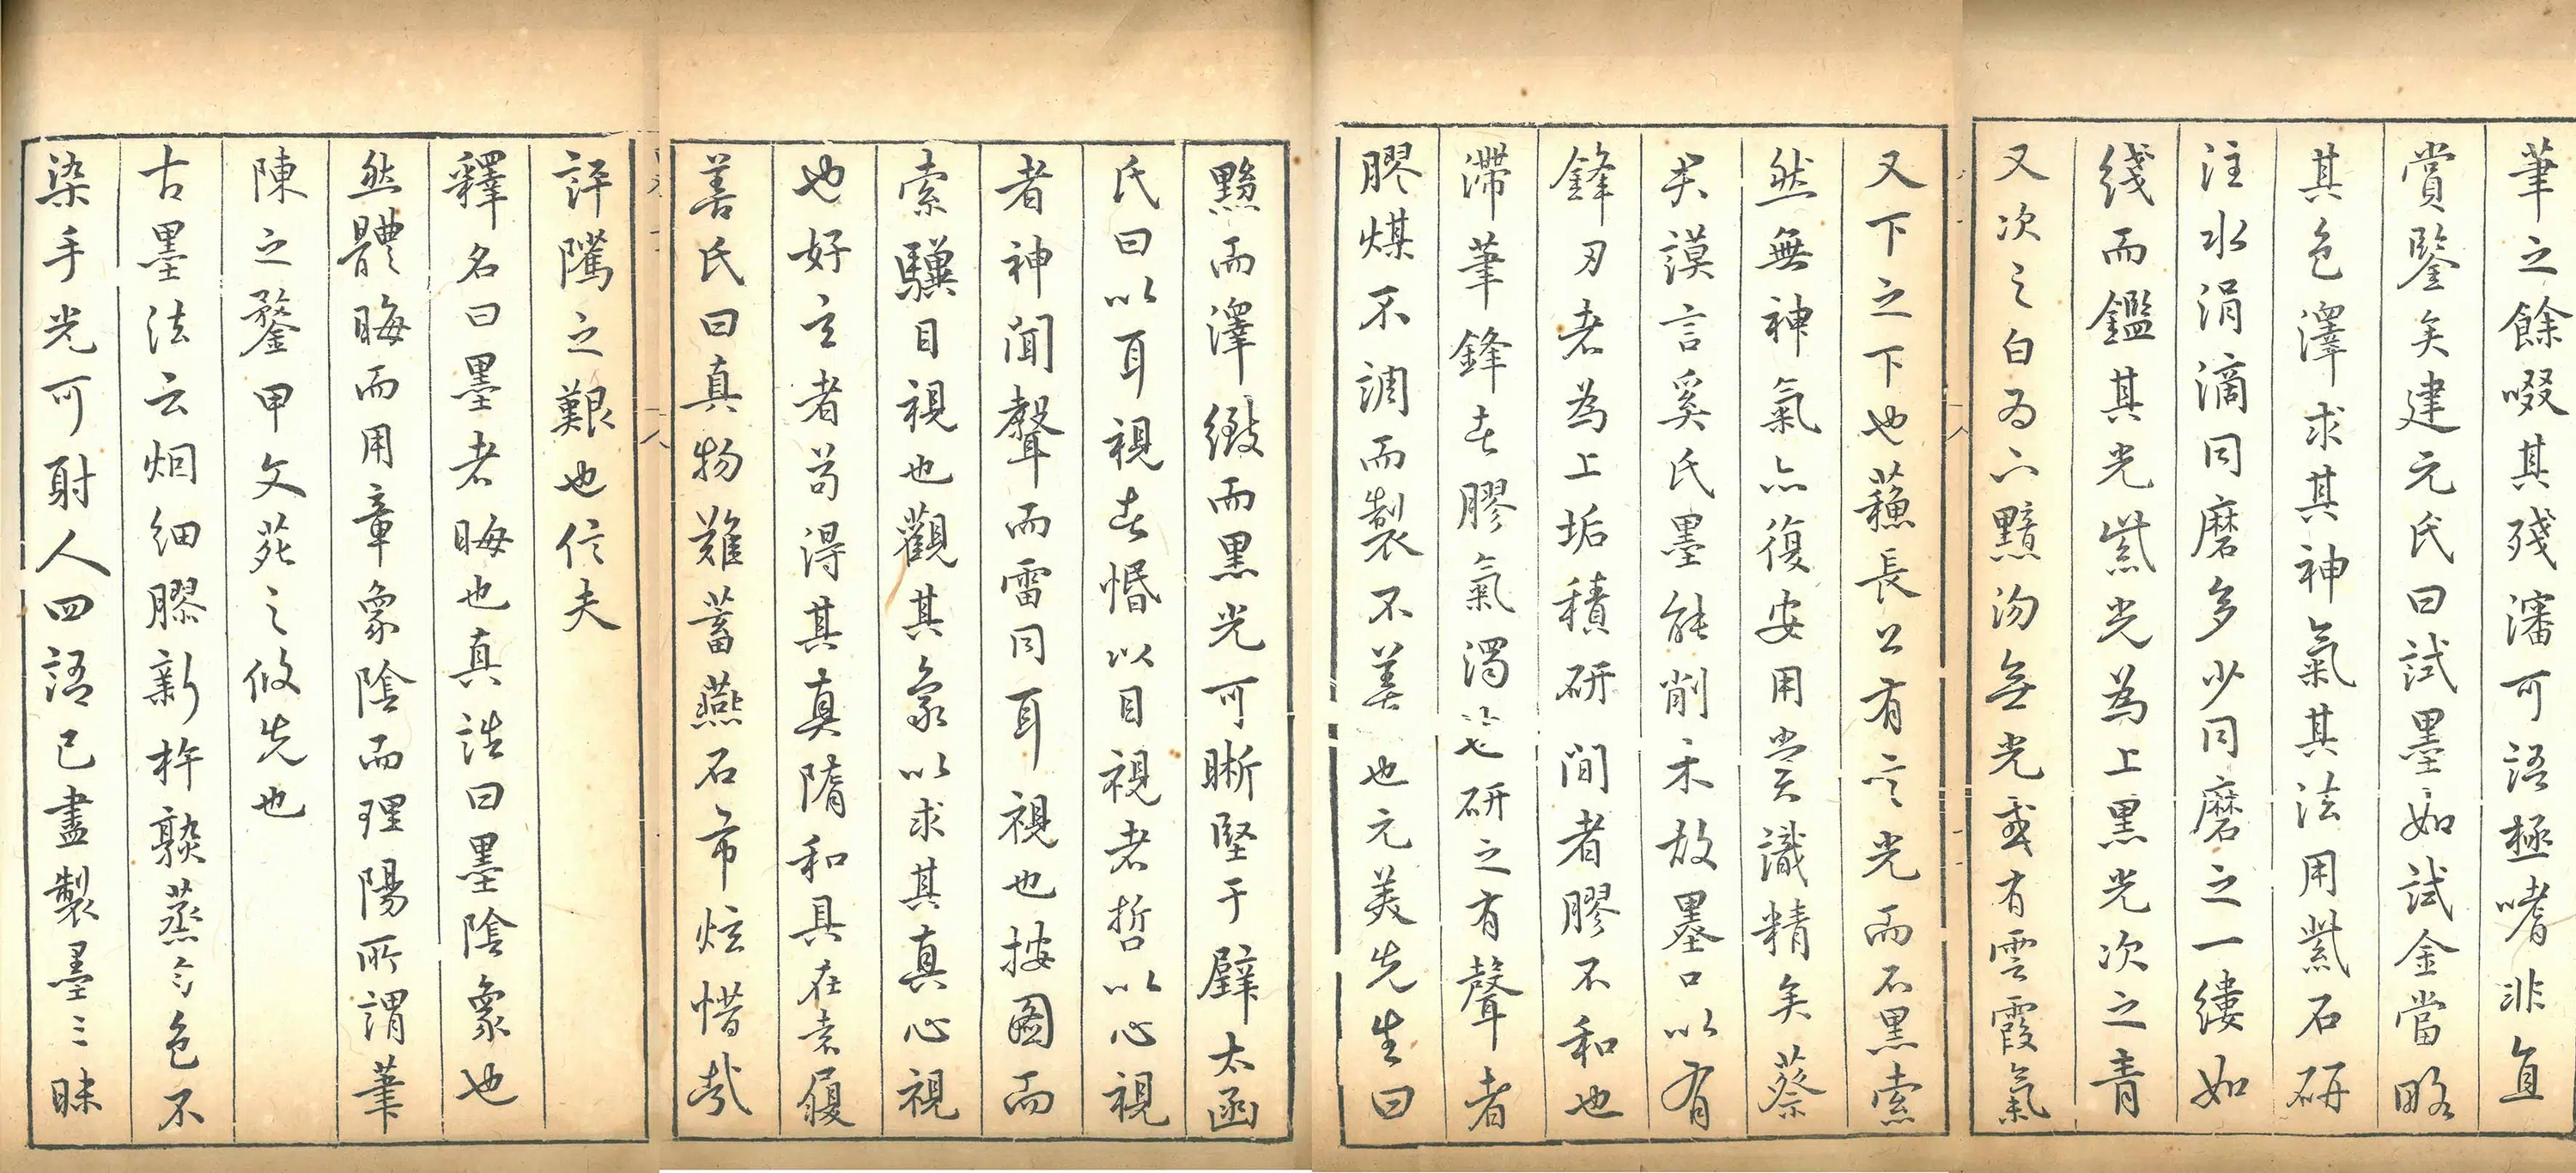 筆之餘啜其殘瀋可語極嗜非直
賞鑒矣建元氏曰試墨如試金當略
其色澤求其神氣其法用紫石研
注水涓滴同磨多少同磨之一縷如
綫而鑑其光紫光為上黑光次之青
又次之白為下黯汤無光或有雲霞氣
又下之下也蘓長公有言光而不黑索
然無神氣亦復安用賞識精矣蔡
君謨言奚氏墨能削木故墨口以有
鋒刃者為上垢積研間者膠不和也
滯筆鋒者膠氣濁 研之有聲者
膠煤不調而製不善也元美先生曰
黟而澤緻而黑光可晰堅于璧太函
氏曰以耳視者惛以目視者哲以心視
者神聞聲而雷同耳視也按圖而
索驥目視也觀其象以求其真心視
也好玄者苟得其真隋和具在袁履
善氏曰真物難蓄燕石市炫惜哉
評隲之艱也信夫
釋名曰墨者晦也真誥曰墨陰象也
然體晦而用章象陰而理陽所謂筆
陳之鍪甲文苑之攸先也
古墨法云烟細膠新杵熟蒸勻色不
染手光可射人四語已盡製墨三昧